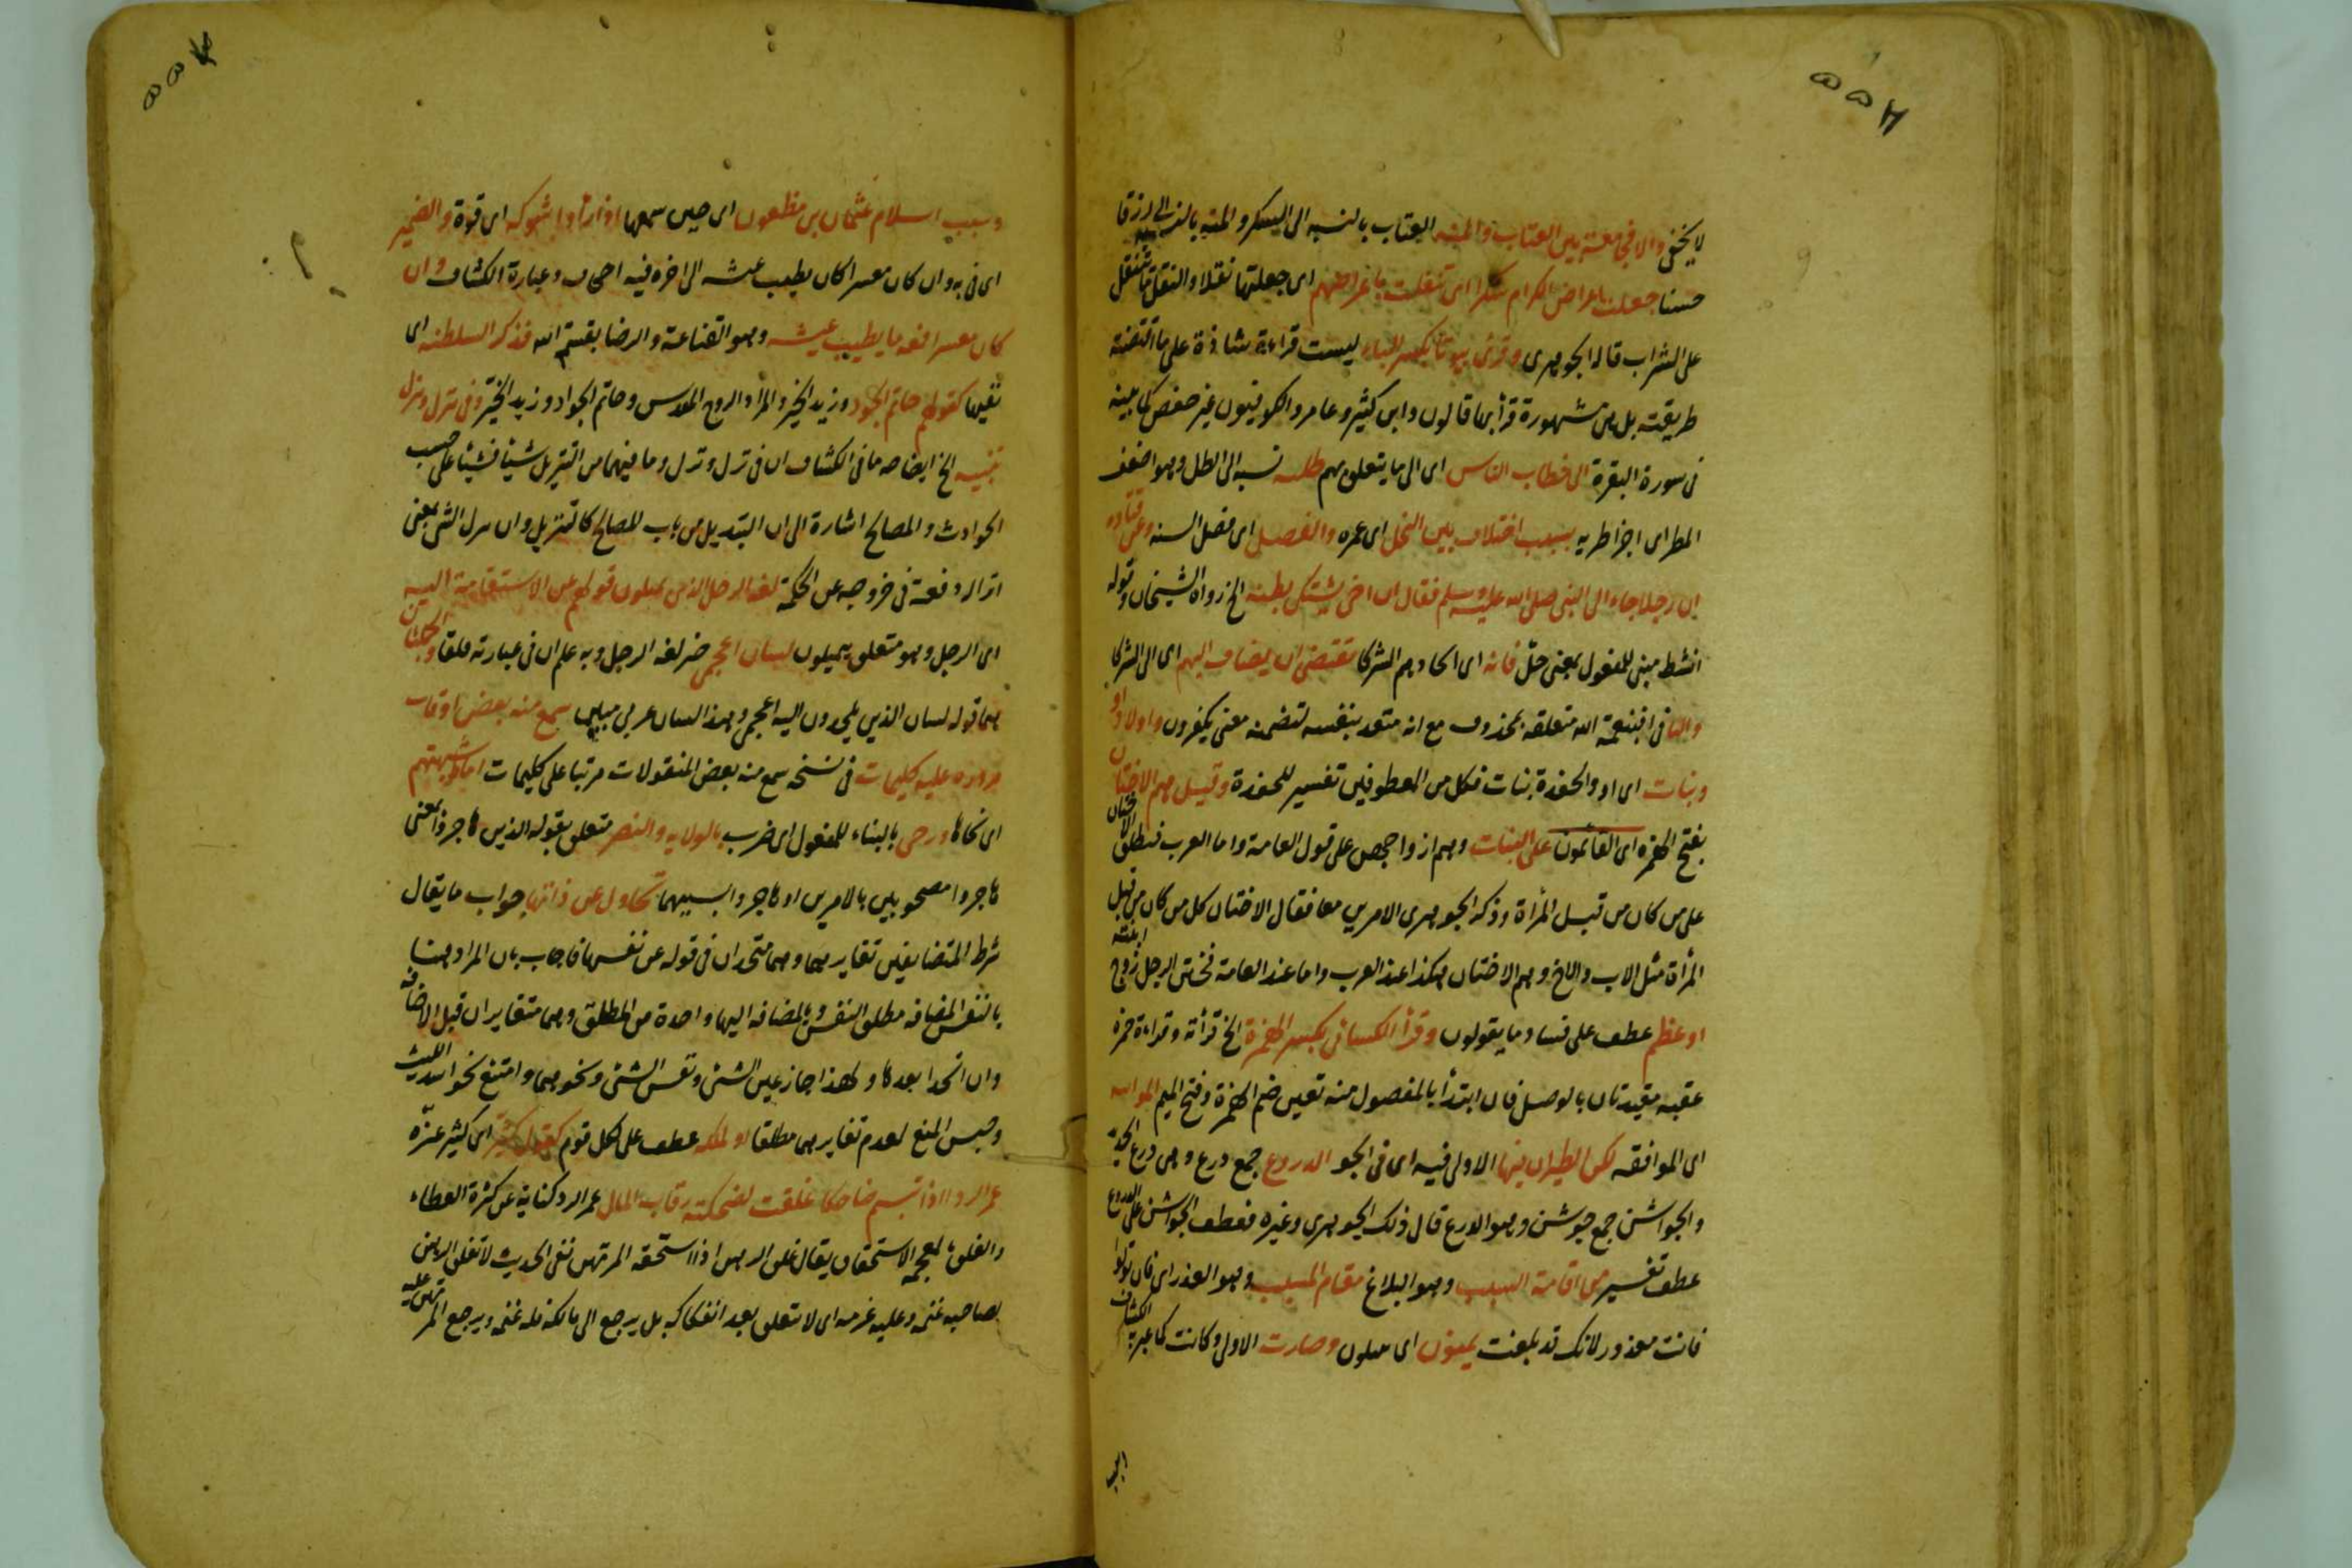 لا يخفى والا فجامعة بين العتاب والمنة العتاب بالنسبه الى السكر والمنه بالنسبه الى رزقا
حسنا جعلت اعراض الكرام سكرا اى تنقلت باعراضهم اى جعلتها نقلا والنقل ما يتنقل
على الشراب قاله الجوهرى وقرئ بيوتا بكسر الباء ليست قراءة شاذة على ما اقتضته
طريقته بل هى مشهورة قرأ بها قالون وابن كثير وعامر والكوفيون غير حفص كما بينه
فى سورة البقرة الى خطاب الناس اى الى ما يتعلق بهم طله نسبه الى الطل وهو اضعف
المطر اى اجزا طريه بسبب اختلاف بين النحل اى عمره والفصل اى فصل السنه وعن قتاده
ان رجلا جاء الى النبى صلى الله عليه وسلم فقال ان اخى يشتكى بطنه الخ رواه الشيخان وقوله
انشط مبنى للمفعول بمعنى حل فانه اى اتخاذهم الشركا تقتضى ان يضاف اليهم اى الى الشركا
والبا فى افبنعمة الله متعلقه بمحذوف مع انه متعد بنفسه لتضمنه معنى يكفرون واولاد او
وبنات اى او والحفدة بنات فكل من المعطوفين تفسير للحفدة وقيل هم الاختان
بفتح الهمزه اى القائمون على البنات وهم ازواجهن على قول العامة واما العرب فتطلق الاختان
على من كان من قبل المرأة وذكر الجوهرى الامرين معا فقال الاختان كل من كان من قبل
المرأة مثل الاب والاخ وهم الاختان هكذا عند العرب واما عند العامة فختن الرجل زوج ابنته
او عظم عطف على فساد ما يقولون وقرأ الكسائى بكسر الهمزة الخ قرأته وقراءة حمزه
عقبه مقيدتان بالوصل فان ابتدأ بالمفصول منه تعين ضم الهمزة وفتح الميم المواتيه
اى الموافقه لكن الطيران فيها الاولى فيه اى فى الجو الدروع جمع درع وهى درع الحديد
والجواشن جمع جوشن وهو الدرع قال ذلك الجوهرى وغيره فعطف الجواشن على الدروع
عطف تفسير من اقامة السبب وهو البلاغ مقام المسبب وهو العذر اى فان تولوا
فانت معذور لانك قد بلغت يميلون اى يميلون وصارت الاولى وكانت كما عبر به الكشاف
وسبب اسلام عثمان بن مظعون اى حين سمعها اذ ارادوا بشوكه اى قوة والضمير
اى فى به وان كان معسرا كان يطيب عيشه الى اخره فيه اجحاف وعبارة الكشاف وان
كان معسرا فمعه ما يطيب عيشه وهو القناعة والرضا بقسم الله فذكر السلطنه اى
نفيها كقولهم حاتم الجود وزيد الخير والمراد الروح المقدس وحاتم الجواد وزيد الخير وفى ينزل ونزل
تنبيه الخ ايضاحه ما فى الكشاف ان فى نزل ونزل وما فيهما من التنزيل شيئا فشيئا على حسب
الحوادث والمصالح اشارة الى ان التبديل من باب المصالح كالتنزيل وان نزل الشئ بمعنى
انزاله دفعة فى خروجه عن الحكمة لغة الرجل الذى يميلون قولهم عن الاستقامة اليه
اى الرجل وهو متعلق بيميلون لسان اعجمى خبر لغة الرجل وبه علم ان فى عبارته قلقا والجملتان
هما قوله لسان الذين يلحدون اليه اعجمى وهذا لسان عربى مبين سمع منه بعض اوقات
مروره عليه كليمات فى نسخه سمع منه بعض المنقولات مرتبا على كليمات اماطوا شبهتهم
اى نحاها ورحى بالبناء للمفعول اى ضرب بالولايه والنصر متعلق بقوله الذين هاجروا بمعنى
هاجروا مصحوبين بالامرين او هاجروا بسببهما تجادل عن ذاتها جواب ما يقال
شرط المتضايفين تغايرهما وهما متحدان فى قوله عن نفسها فاجاب بان المراد هنا
بالنفس المضافه مطلق النفس وبالمضافه اليها واحدة من المطلق وهما متغايران قبل الاضافه
وان اتحدا بعدها ولهذا جاز عين الشئ ونفس الشئ ونحوهما وامتنع نحو اسد الليث
وحبس المنع لعدم تغايرهما مطلقا او لمكه عطف على لكل قوم كقول كثير اى كثير عزة
غمر الردا اذا تبسم ضاحكا غلقت لضحكته رقاب المال غمر الردا كناية عن كثرة العطاء
والغلق بالمعجمه الاستحقاق يقال غلق الرهن اذا استحقه المرتهن ففى الحديث لا تغلق الرهن
لصاحبه غنمه وعليه غرمه اى لا تتعلق بعد انفكاكه بل يرجع الى مالكه فله غنمه ويرجع المرتهن عليه